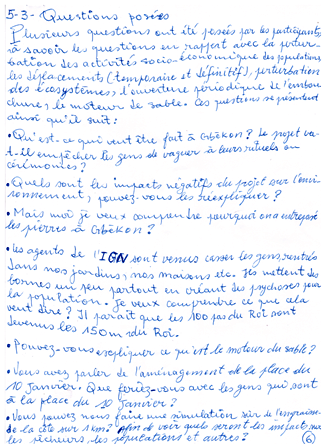 5-3- Questions posées
Plusieurs questions ont été posées par les participants
à savoir les questions en rapport avec la pertur-
bation des activités socio-économique des populations
les déplacements (temporaire et définitif), perturbation
des écosystèmes, l'ouverture périodique de l'embou
chure, le moteur de sable. Ces questions se présentent
ainsi qu'il suit :
• Qu'est-ce qui veut être fait à Gbèkon ? Le projet va-
t-il empêcher les gens de vaquer à leurs rituels ou
cérémonies ?
• Quels sont les impacts négatifs du projet sur l'envi-
ronnement, pouvez-vous les réexpliquer ?
• Mais moi je veux comprendre pourquoi on a entreposé
les pierres à Gbèkon ?
• Les agents de l'IGN sont venus casser les gens, rentrés
dans nos jardins, nos maisons etc. Ils mettent des
bornes un peu partout en créant des psychoses pour
la population. Je veux comprendre ce que cela
veut dire ? Il paraît que les 100 pas du Roi sont
devenus les 150m du Roi.
• Pouvez-vous expliquer ce qu'est le moteur du sable ?
• Vous avez parler de l'aménagement de la place du
10 Janvier. Que feriez-vous avec les gens qui sont
à la place du 10 Janvier ?
• Vous pouvez nous faire une simulation sur de l'engraisse-
de la côte sur 1km ? afin de voir quels seront les impacts sur
les pêcheurs, les populations et autres ?
6